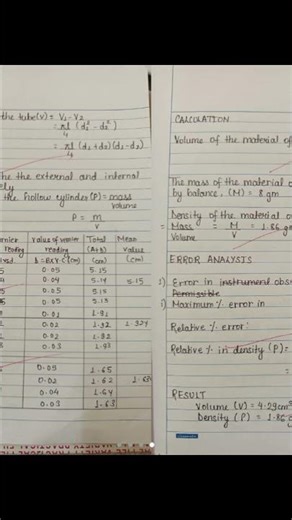 the tube(v) = V₁ - V₂
= πl/4 (d₁² - d₂²)
= πl/4 (d₁ + d₂) (d₁ - d₂)
the the external and internal
ely
the hollow cylinder (P) = mass/volume
P = m/V
ernier
value of vernier
Total
Mean
reading
reading
(A+B)
value
B = BXV·C (cm)
(cm)
(cm)
0.05 5.15
0.04 5.14 5.15
0.05 5.15
0.01 1.91
0.02 1.92
0.02 1.92
0.03 1.93
0.05 1.65
0.02 1.62
0.04 1.64
0.03 1.63
CALCULATION
Volume of the material of
The mass of the material
by balance, (M) = 8 gm
Density of the material
= Mass/Volume = M/V = 1.86 gm
ERROR ANALYSIS
i) Error in instrument obs
Permissible
i) Maximum % error in
Relative % error:
Relative % in density (P) =
RESULT
Volume (V) = 4.29 cm³
Density (P) = 1.86